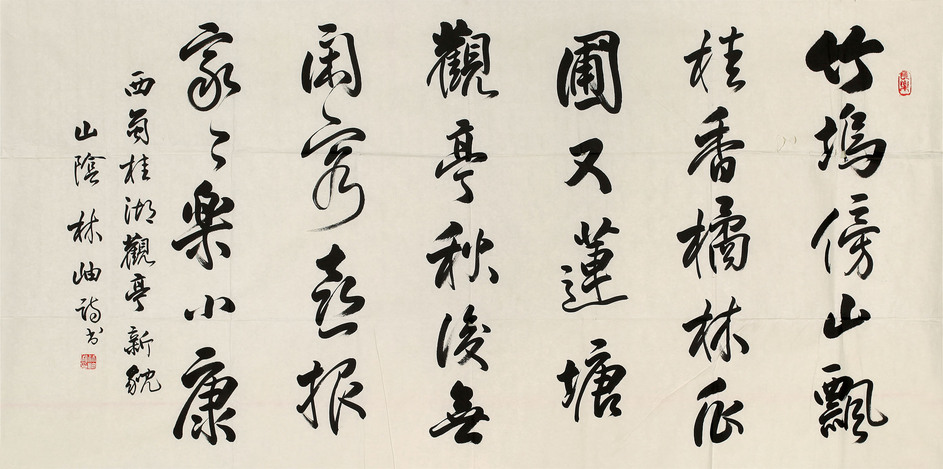 長樂
竹塢傍山飄
桂香橘林丘
圃又蓮塘
觀亭秋後無
閑客喜報
家々樂小康
西蜀桂湖觀亭新貌
山陰林岫詩書